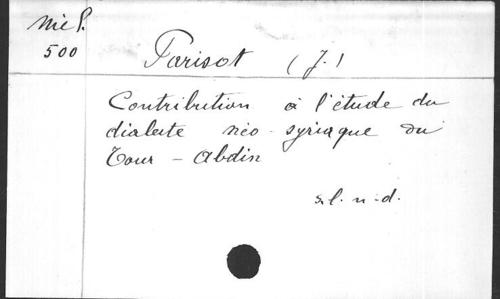 Mél.
500
Parisot (J.)
Contribution à l'étude du
dialecte néo-syriaque du
Tour-Abdin
s.l.n.d.